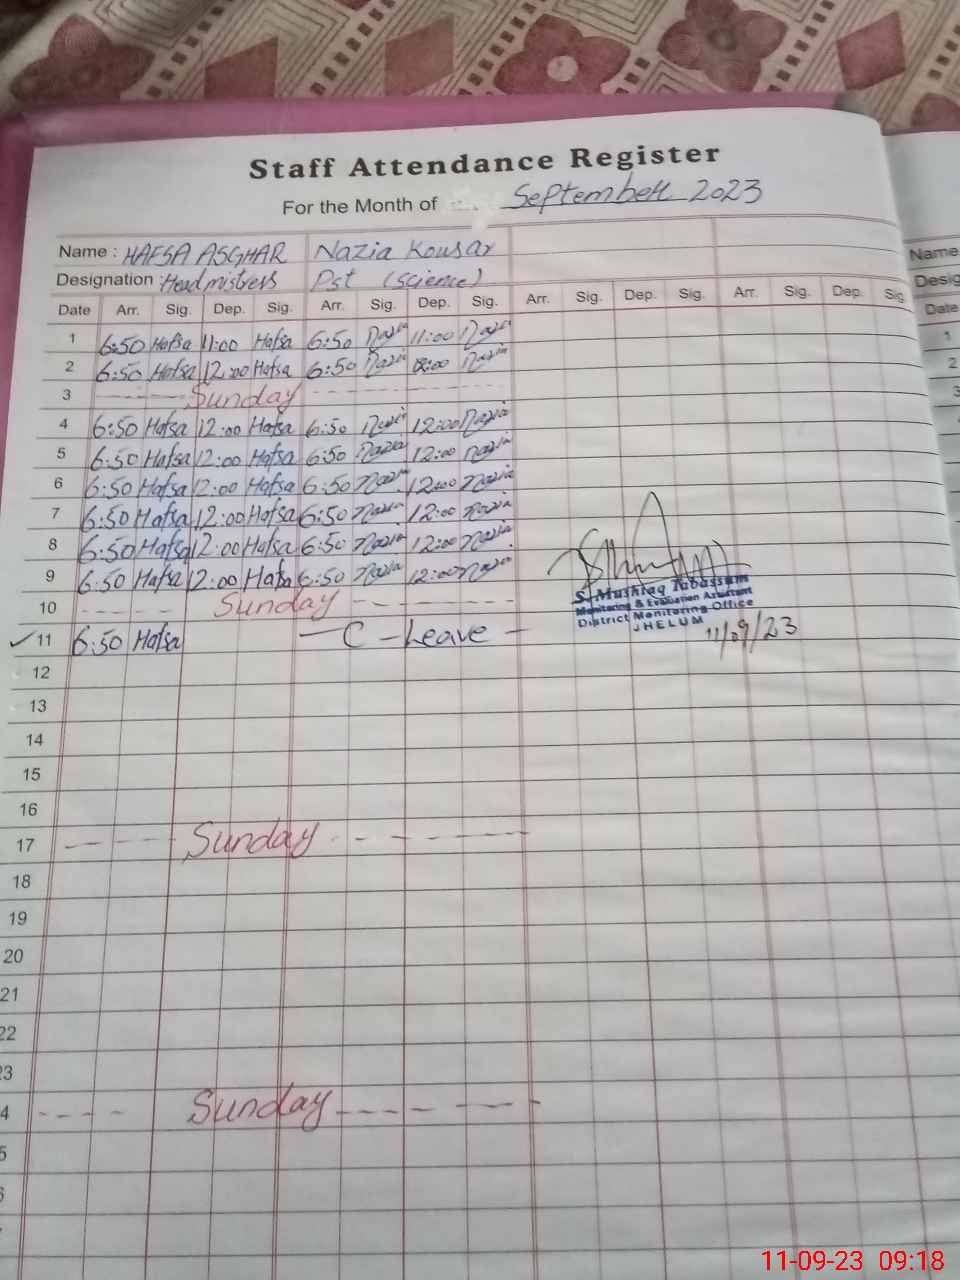 Staff Attendance Register
For the Month of September 2023
Name : HAFSA ASGHAR Nazia Kousar
Name
Designation : Headmistress Pst (Science)
Desig
Date Arr. Sig. Dep. Sig. Arr. Sig. Dep. Sig. Arr. Sig. Dep. Sig. Arr. Sig. Dep. Sig.
Date
1 6:50 Hafsa 11:00 Hafsa 6:50 Nazia 11:00 Nazia
1
2 6:50 Hafsa 12:00 Hafsa 6:50 Nazia 12:00 Nazia
2
3 Sunday
3
4 6:50 Hafsa 12:00 Hafsa 6:50 Nazia 12:00 Nazia
5 6:50 Hafsa 12:00 Hafsa 6:50 Nazia 12:00 Nazia
6 6:50 Hafsa 12:00 Hafsa 6:50 Nazia 12:00 Nazia
7 6:50 Hafsa 12:00 Hafsa 6:50 Nazia 12:00 Nazia
8 6:50 Hafsa 12:00 Hafsa 6:50 Nazia 12:00 Nazia
9 6:50 Hafsa 12:00 Hafsa 6:50 Nazia 12:00 Nazia
S. Mushtaq Tabassum
Monitoring & Evaluation Assistant
District Monitoring Office
JHELUM
11/09/23
10 Sunday
11 6:50 Hafsa C - Leave
12
13
14
15
16
17 Sunday
18
19
20
21
22
23
4 Sunday
5
6
11-09-23 09:18